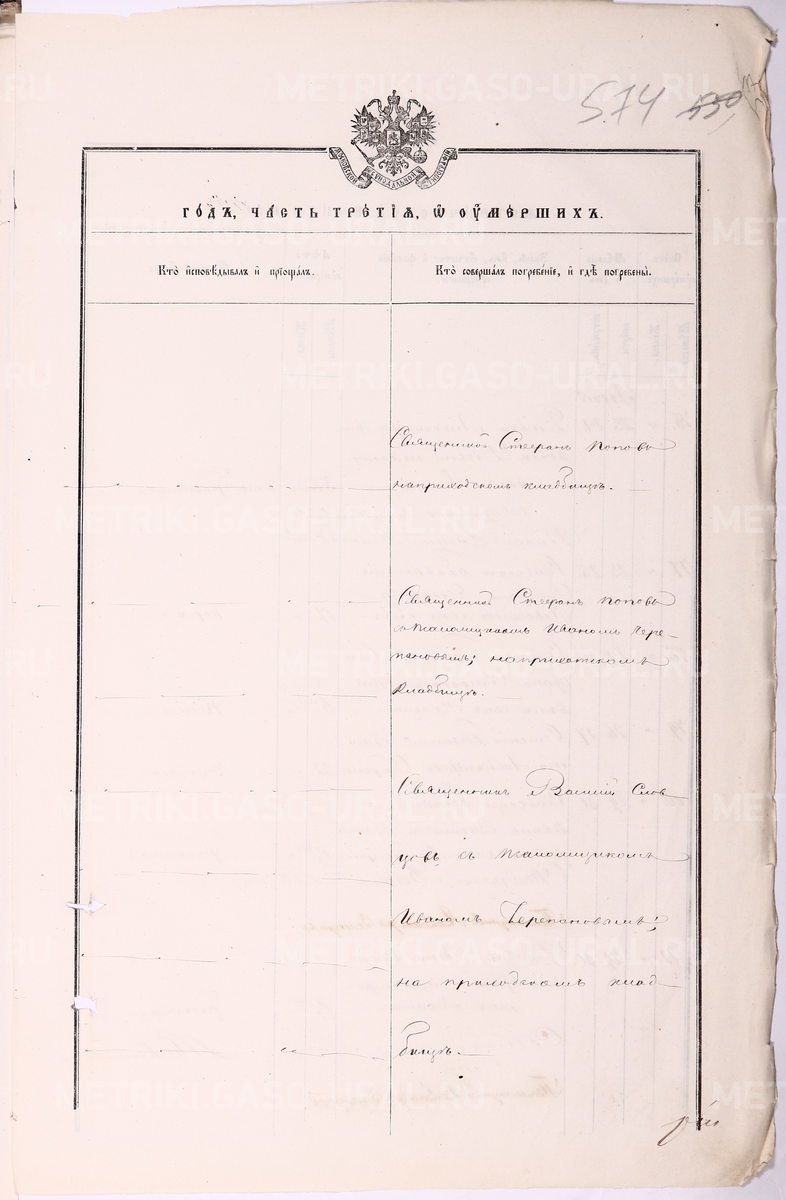 574 550
МОСКОВСКОЙ СѴНОДАЛЬНОЙ ТИПОГРАФІИ
ГО́ДЪ, ЧА́СТЬ ТРЕ́ТІѦ, Ѿ ОУ҆МЕ́РШИХЪ.
Кто̀ и҆сповѣ́дывалъ и҆ прїѡбща́лъ.
Кто̀ соверша́лъ погребе́нїе, и҆ гдѣ̀ погребены̀.
Священникъ Стефанъ Поповъ
на приходскомъ кладбищѣ.
Священникъ Стефанъ Поповъ
съ псаломщикомъ Иваномъ Чере-
пановымъ; на приходскомъ
кладбищѣ.
Священникъ Василій Слов
цовъ съ псаломщикомъ
Иваномъ Черепановымъ;
на приходскомъ клад
бищѣ.
METRIKI.GASO-URAL.RU